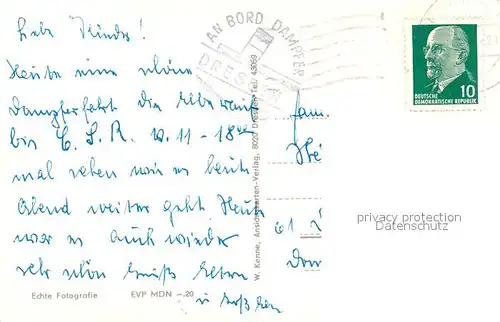 Liebe Kinder!
Heute eine schöne
Dampferfahrt die Elbe
bis C.S.R. v. 11 - 18
mal sehen wie es heute
Abend weiter geht. Heute
war es auch wieder
sehr schön Gruß Eltern
u
Echte Fotografie EVP MDN -.20
W. Kenne, Ansichtskarten-Verlag, 8020 Dresden Tel. 43069
AN BORD DAMPFER
DRESDEN
DEUTSCHE
DEMOKRATISCHE REPUBLIK
10
Fam.
61
privacy protection
Datenschutz